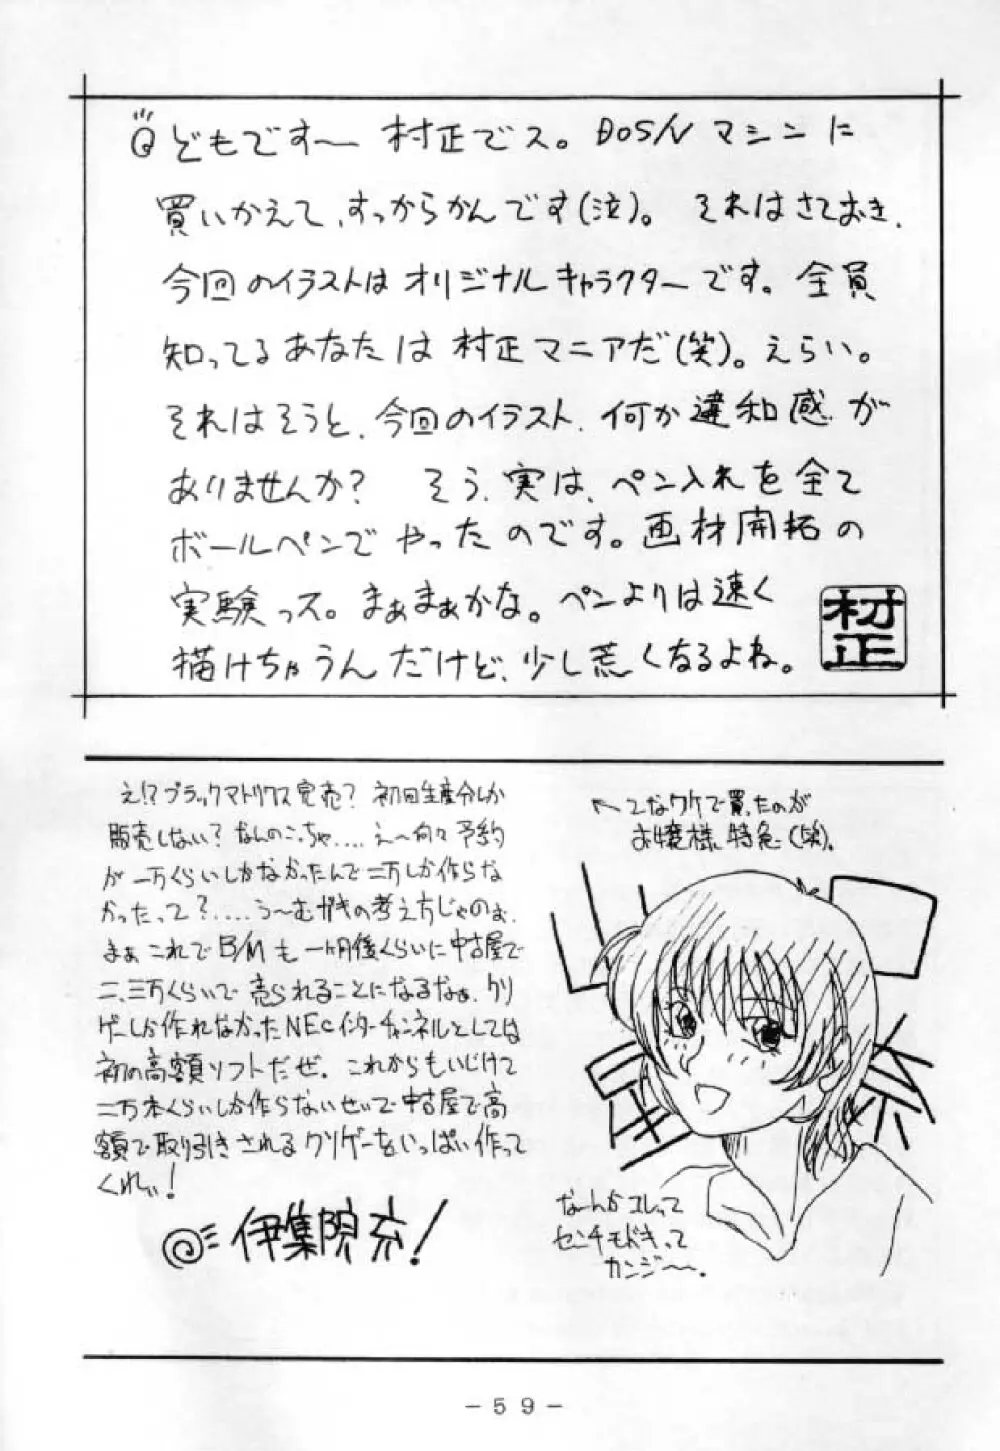 どもです〜 村正でス。DOS/Vマシンに
買いかえて、すっからかんです(泣)。 それはさておき、
今回のイラストはオリジナルキャラクターです。全員
知ってるあなたは村正マニアだ(笑)。えらい。
それはそうと、今回のイラスト、何か違和感が
ありませんか? そう、実は、ペン入れを全て
ボールペンでやったのです。画材開拓の
実験っス。まぁまぁかな。ペンよりは速く
描けちゃうんだけど、少し荒くなるよね。
村正
え!?ブラックマトリクス完売? 初回生産分しか
販売しない?なんのこっちゃ....え〜何々予約
が一万くらいしかなかったんで二万しか作らな
かったって?....う〜むガキの考え方じゃのぉ。
まぁこれでB/Mも一ヶ月後くらいに中古屋で
二、三万くらいで売られることになるなぁ。クリ
ゲーしか作れなかったNECインターチャンネルとしては
初の高額ソフトだぜ。これからもいじけて
二万本くらいしか作らないせいで中古屋で高
額で取り引きされるクソゲーをいっぱい作って
くれぃ!
伊集院充!
←こなワケで買ったのが
お嬢様特急(笑)。
なーんかコレって
センチモドキって
カンジ〜〜。
-59-